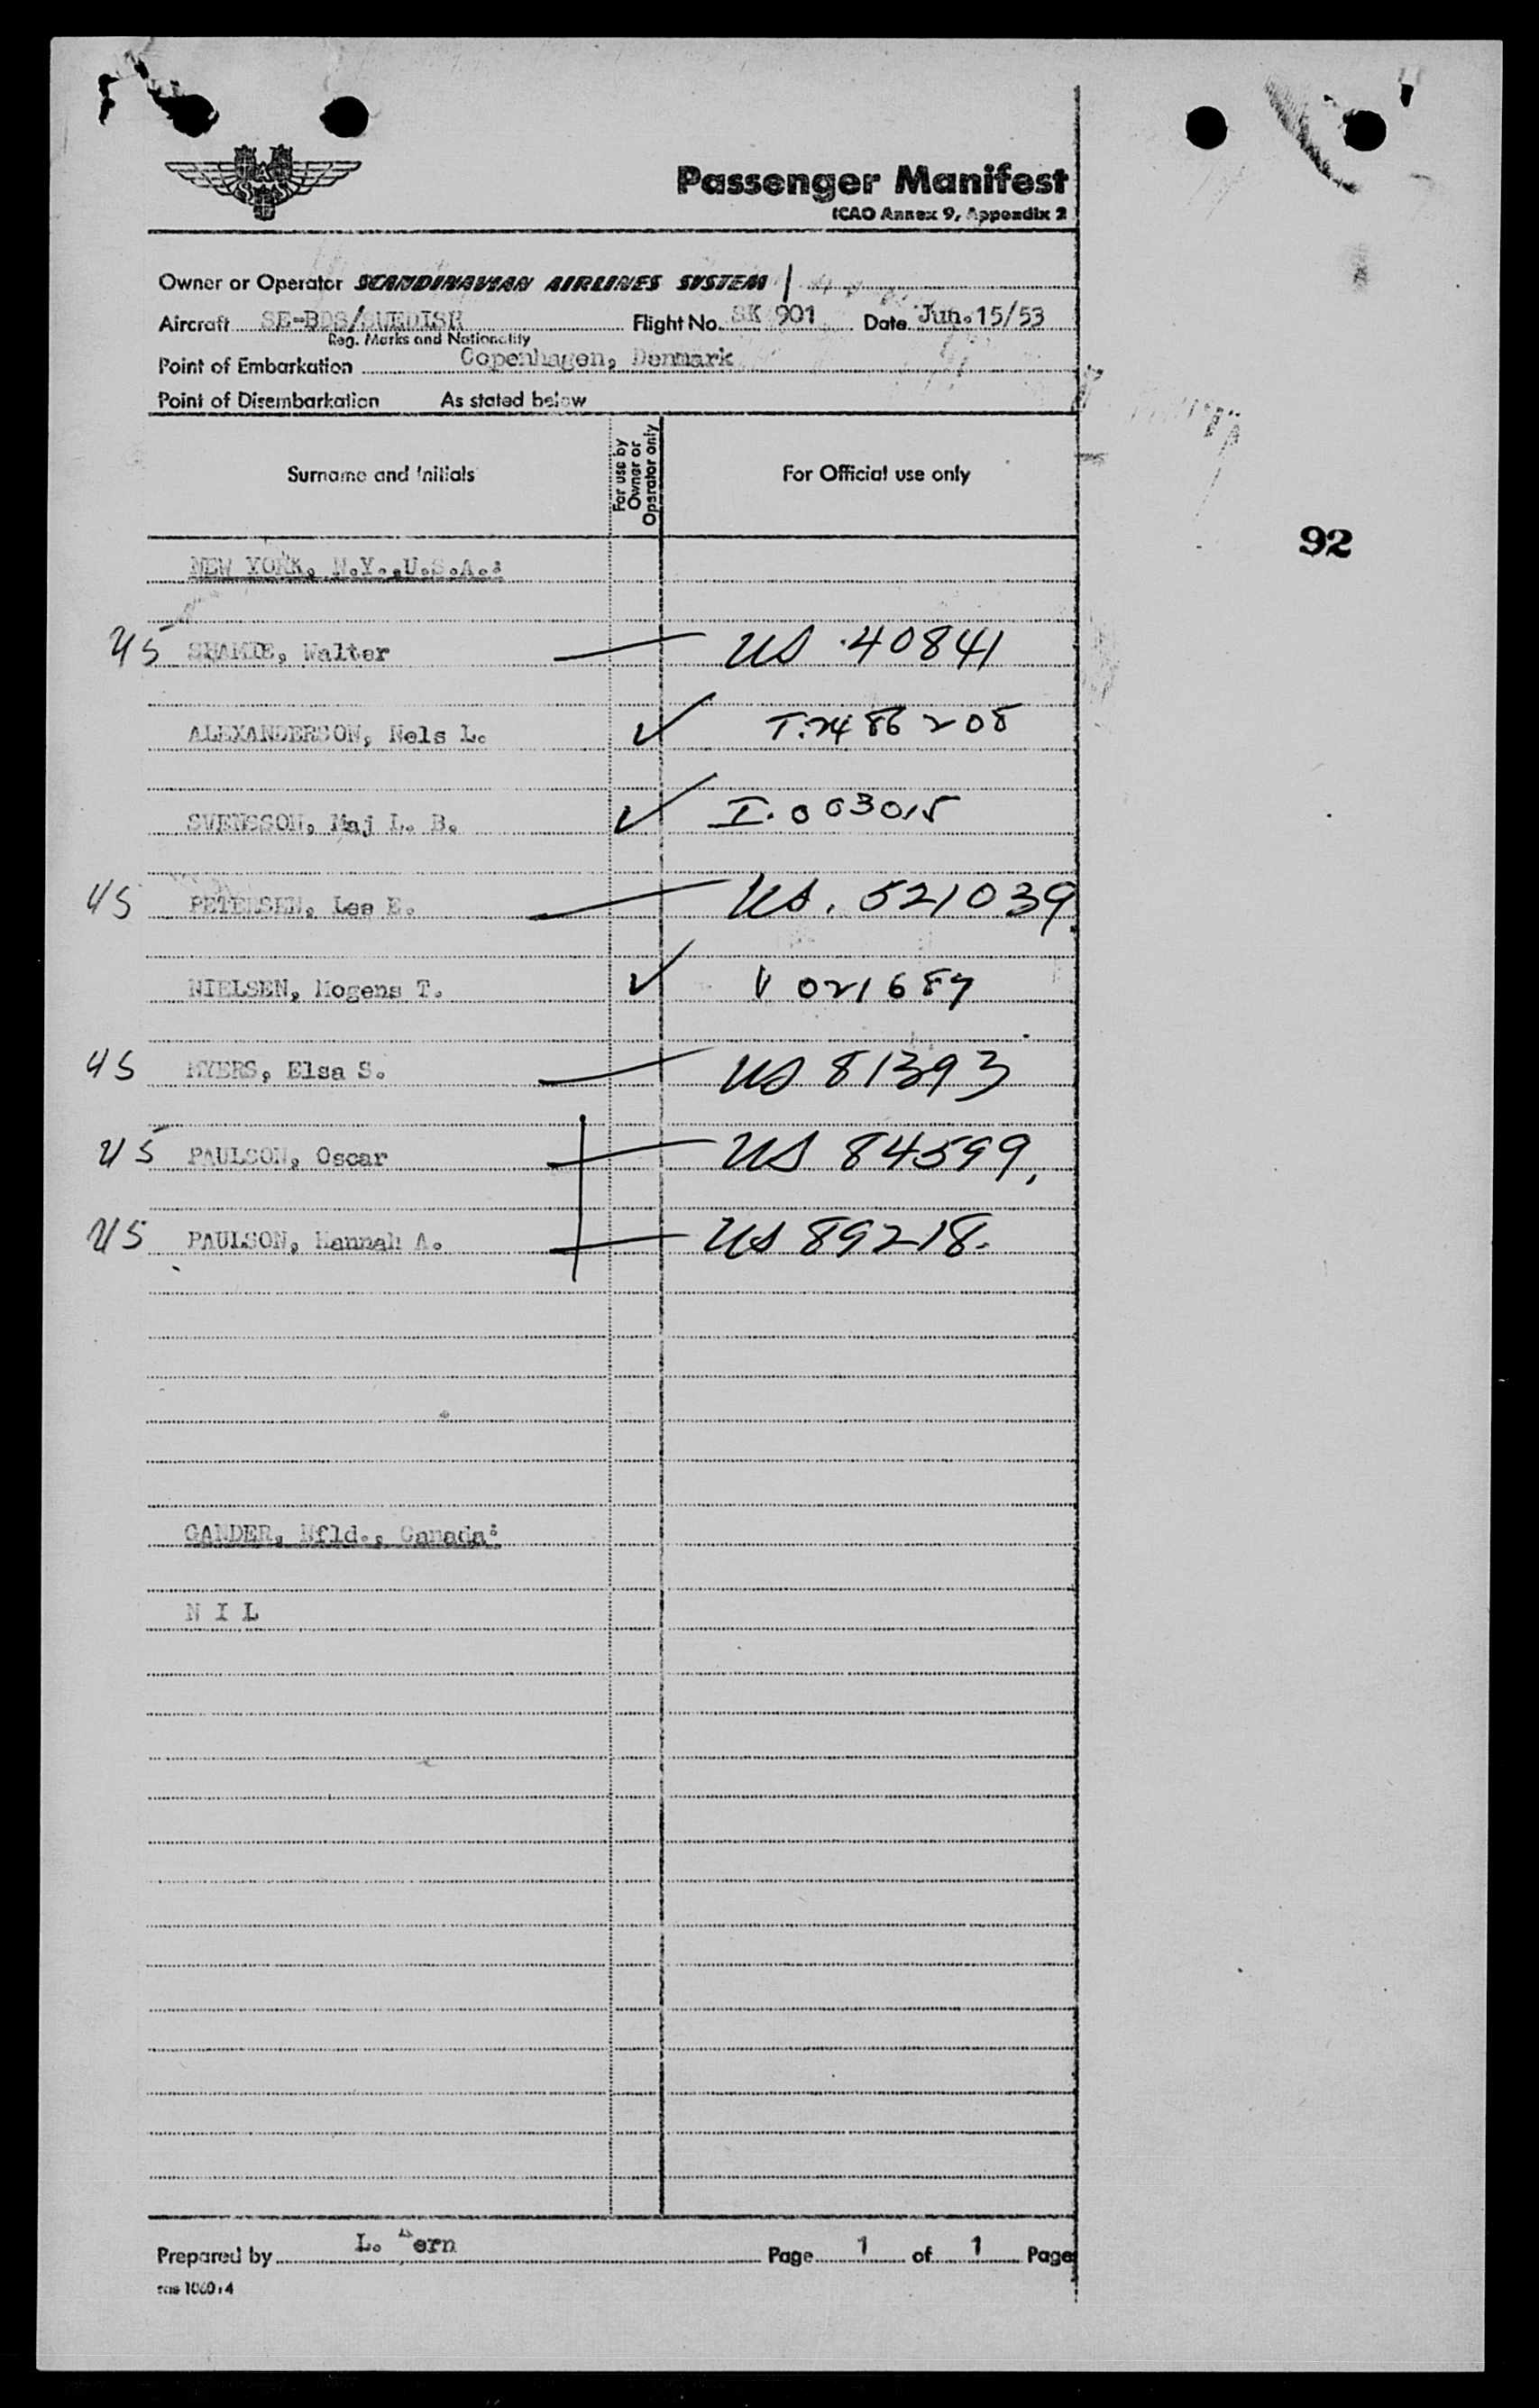 SAS
Passenger Manifest
ICAO Annex 9, Appendix 2
Owner or Operator SCANDINAVIAN AIRLINES SYSTEM
Aircraft SE-BDS/SWEDISH Flight No. SK 901 Date Jun. 15/53
Reg. Marks and Nationality
Point of Embarkation Copenhagen, Denmark
Point of Disembarkation As stated below
Surname and Initials For use by Owner or Operator only For Official use only
92
NEW YORK, N.Y.,U.S.A.:
US Walter US 40841
ALEXANDERSON, Nels L. ✓
SVENSSON, Maj L. B. ✓ I.003015
US PETERSEN, Lea E. US. 521039
NIELSEN, Mogens T. ✓ V 021687
US MYERS, Elsa S. US 81393
US PAULSON, Oscar US 84599
US PAULSON, Hannah A. US 89218.
GANDER, Nfld., Canada:
N I L
Prepared by L. Page 1 of 1 Page